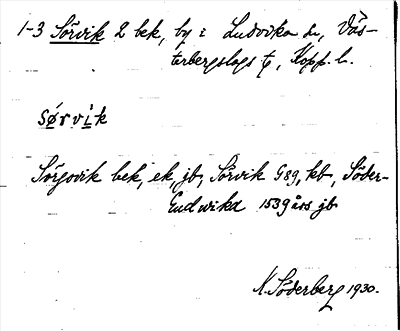 1-3 Sörvik 2 bek, by i Ludvika sn, Väs-
terbergslags tg, Kopp. l.
sørvik
Sörgovik bek, ek, jb, Sörvik G89, kb, Söder-
Ludwika 1539 års jb
N. Söderberg 1930.